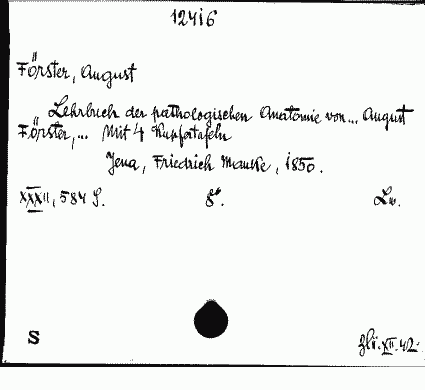 12416
Förster, August
Lehrbuch der pathologischen Anatomie von... August
Förster,... Mit 4 Kupfertafeln
Jena, Friedrich Mauke, 1850.
XXXII, 584 S. 8°. Lw.
S
XII.42.